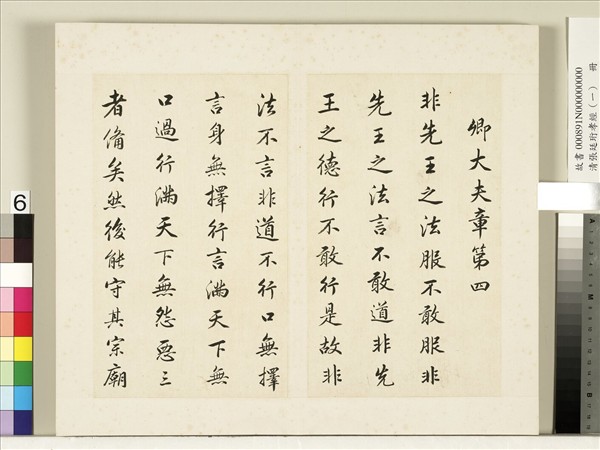 卿大夫章第四
非先王之法服不敢服非
先王之法言不敢道非先
王之德行不敢行是故非
法不言非道不行口無擇
言身無擇行言滿天下無
口過行滿天下無怨惡三
者備矣然後能守其宗廟
故書000891N000000000
清張廷珩孝經(一) 冊
6
A
M
B